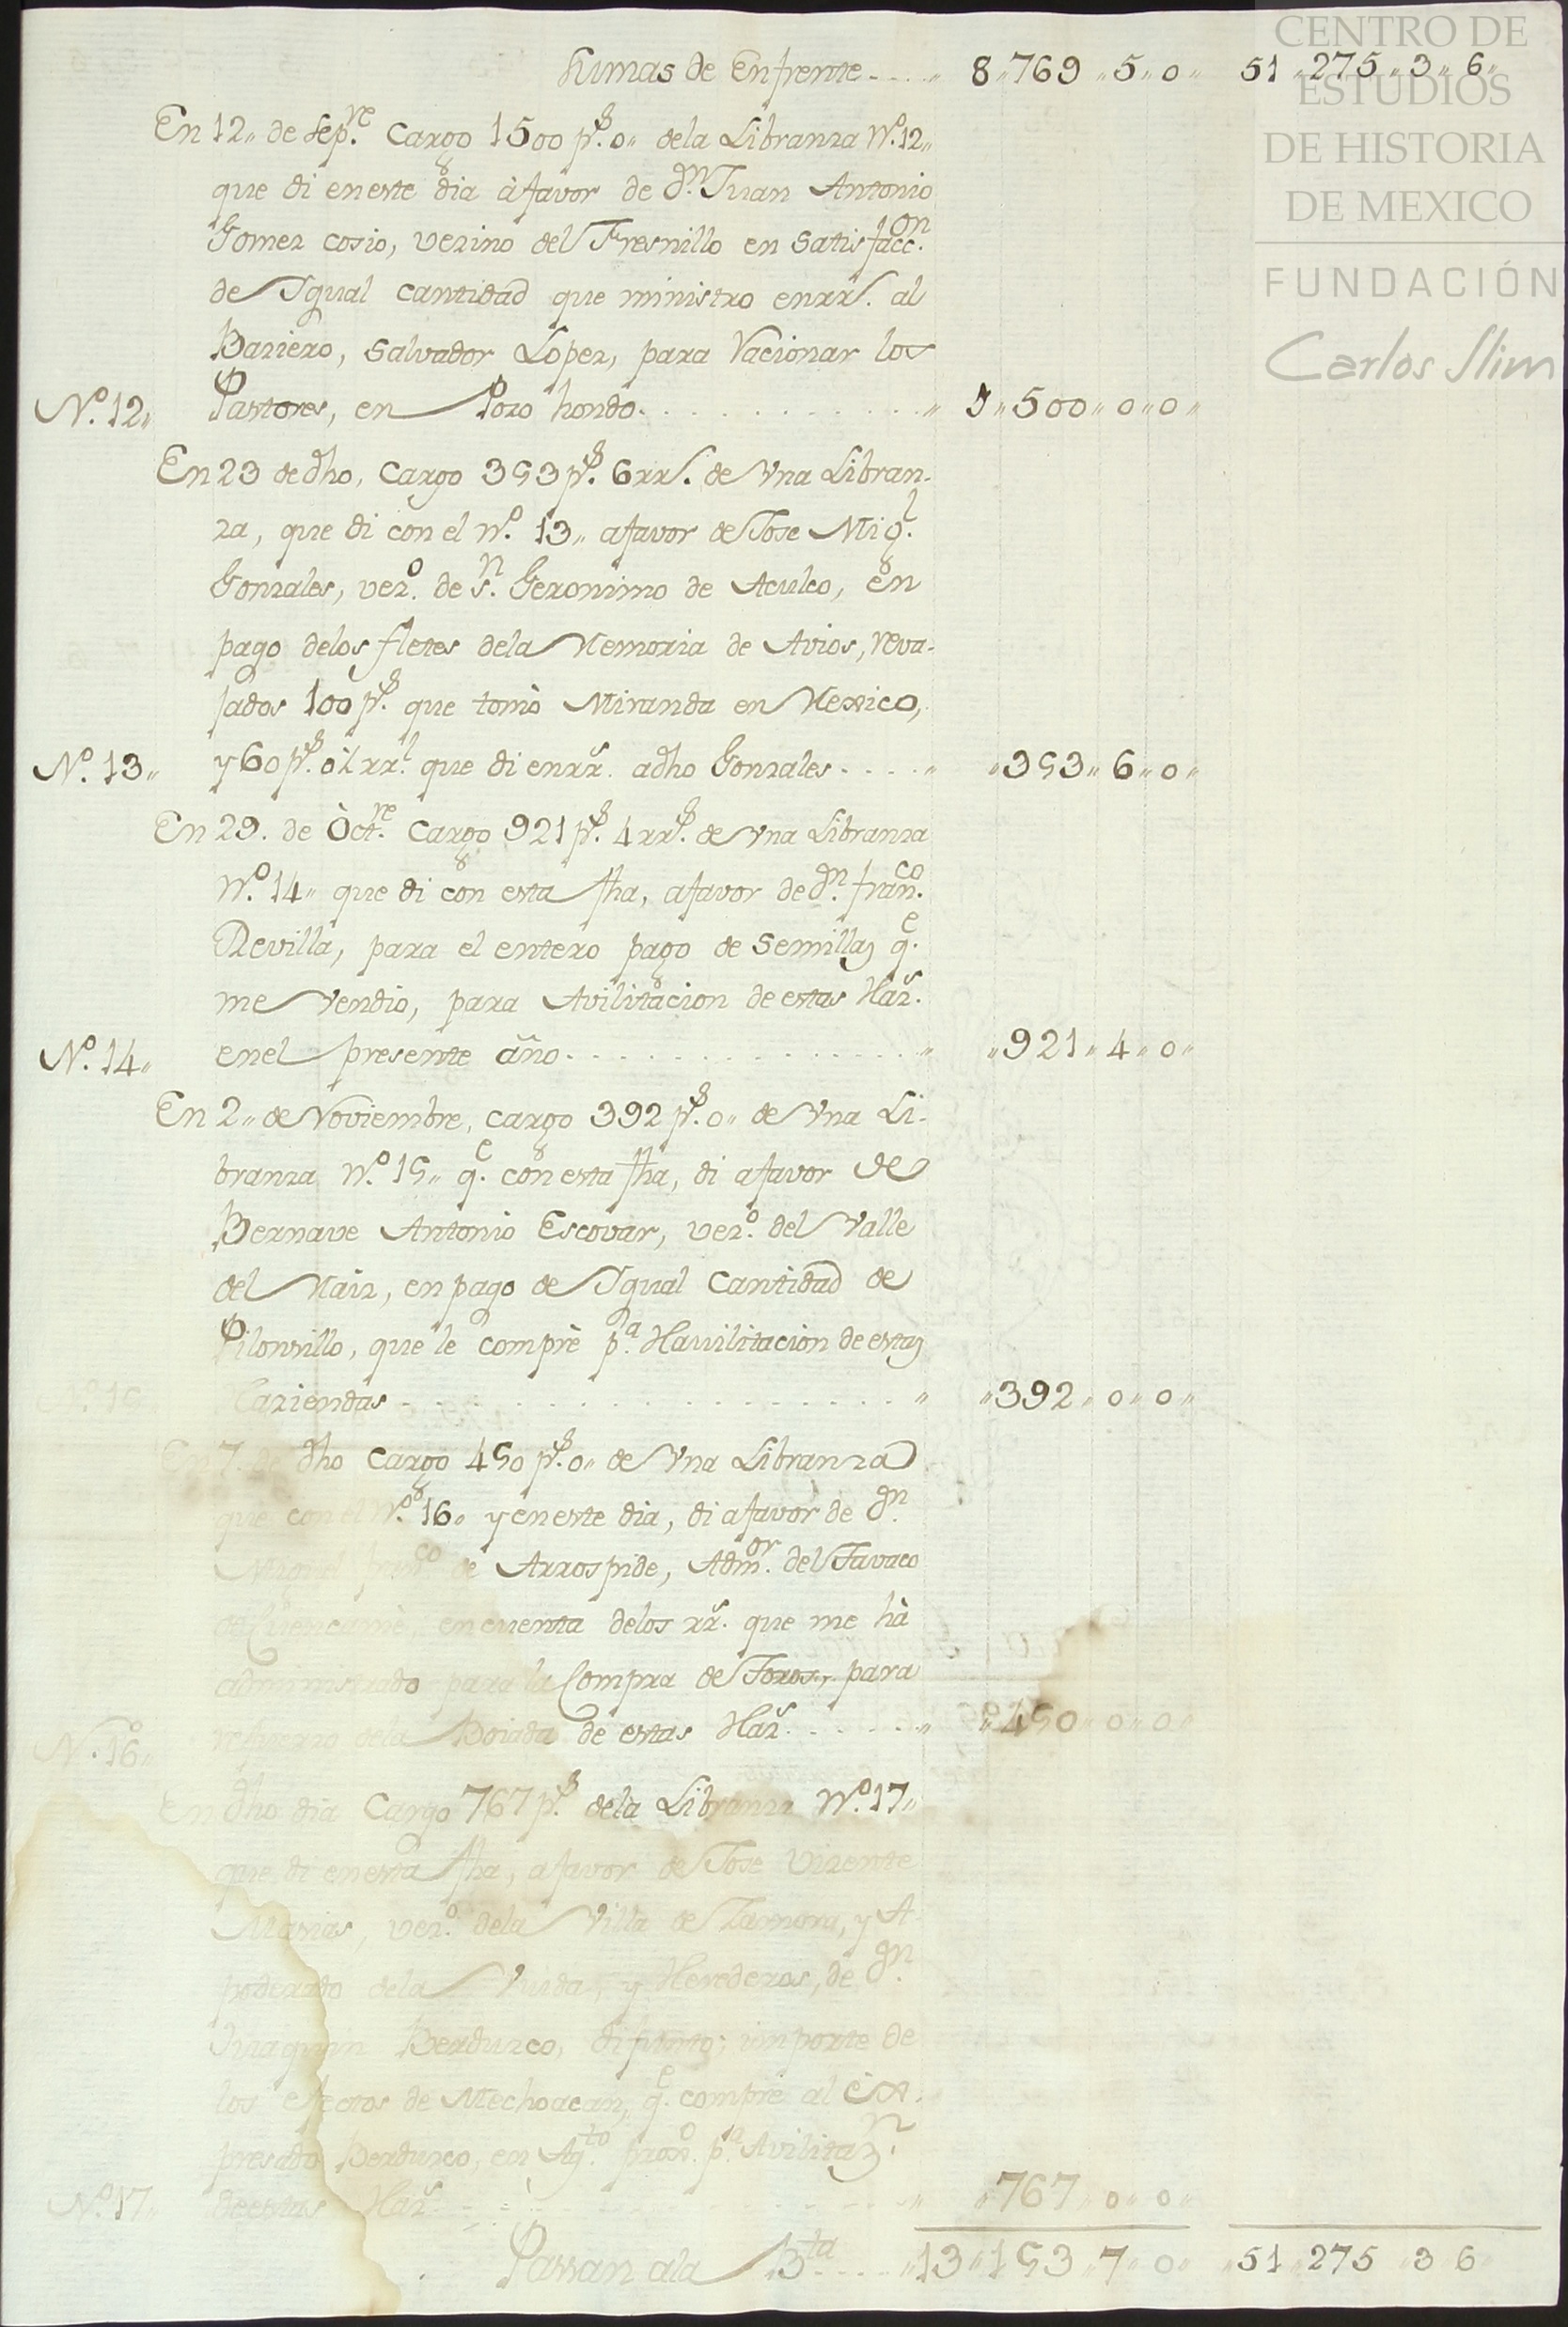 Sumas de Enfrente.... " 8"769"5"0" 51"275"3"6"
En 12" de Sepre. Cargo 1500 ps. 0" dela Libranza No. 12"
que di eneste dia à favor de Dn. Juan Antonio
Gomez cosio, vezino del Fresnillo en Satisfaccon.
de Igual cantidad que ministro enrrs. al
Baziero, Salvador Lopez, para Racionar los
No. 12" Pastores, en Pozo hondo............ " 1"500"0"0"
En 23 de dho, Cargo 353 ps. 6 rrs. de Vna Libran-
za, que di con el No. 13" afavor de Jose Migl.
Gonzales, vezo. de Sn. Geronimo de Aculco, en
pago delos fletes dela Memoria de Avios, reva-
jados 100 ps. que tomò Miranda en Mexico,
No. 13" y 60 ps. 0½ rrl. que di enrrs. adho Gonzales.... " "353"6"0"
En 29. de Octre. Cargo 921 ps. 4 rrs. de Vna Libranza
No. 14" que di con esta fha, afavor de Dn. Franco.
Revilla, para el entero pago de Semillas qe.
me vendio, para Avilitacion de estas Hazs.
No. 14" enel presente año................ " "921"4"0"
En 2" de Noviembre, cargo 392 ps. 0" de Vna Li-
branza No. 15" qe. con esta fha, di afavor de
Bernave Antonio Escovar, vezo. del Valle
del Maiz, en pago de Igual Cantidad de
Pilonsillo, que le comprè pa. Havilitacion de estas
No. 15 Haziendas................ " "392"0"0"
En 7. de dho Cargo 450 ps. 0" de Vna Libranza
que con el No. 16" y en este dia, di afavor de Dn.
Miguel Franco. de Arrospide, Admor. del Tavaco
de Cuencamè, encuenta delos rrs. que me hà
administrado para la Compra de Toros, para
No. 16" refuerzo dela Boiada de estas Hazs...... " "450"0"0"
En dho dia Cargo 767 ps. dela Libranza No. 17"
que di enesta fha, afavor de Jose Vizente
Marias, vezo. dela Villa de Zamora, y A-
poderado dela Viuda, y Herederos, de Dn.
Juaquin Berduzco, difunto; importe de
los efectos de Mechoacan, qe. compre al Ex-
presado Berduzco, en Agto. proxo. pa. Avilitazn.
No. 17" deestas Hazs............ " "767"0"0"
Passan ala Bta.... "13"153"7"0" "51"275"3"6"
CENTRO DE
ESTUDIOS
DE HISTORIA
DE MEXICO
FUNDACIÓN
Carlos Slim